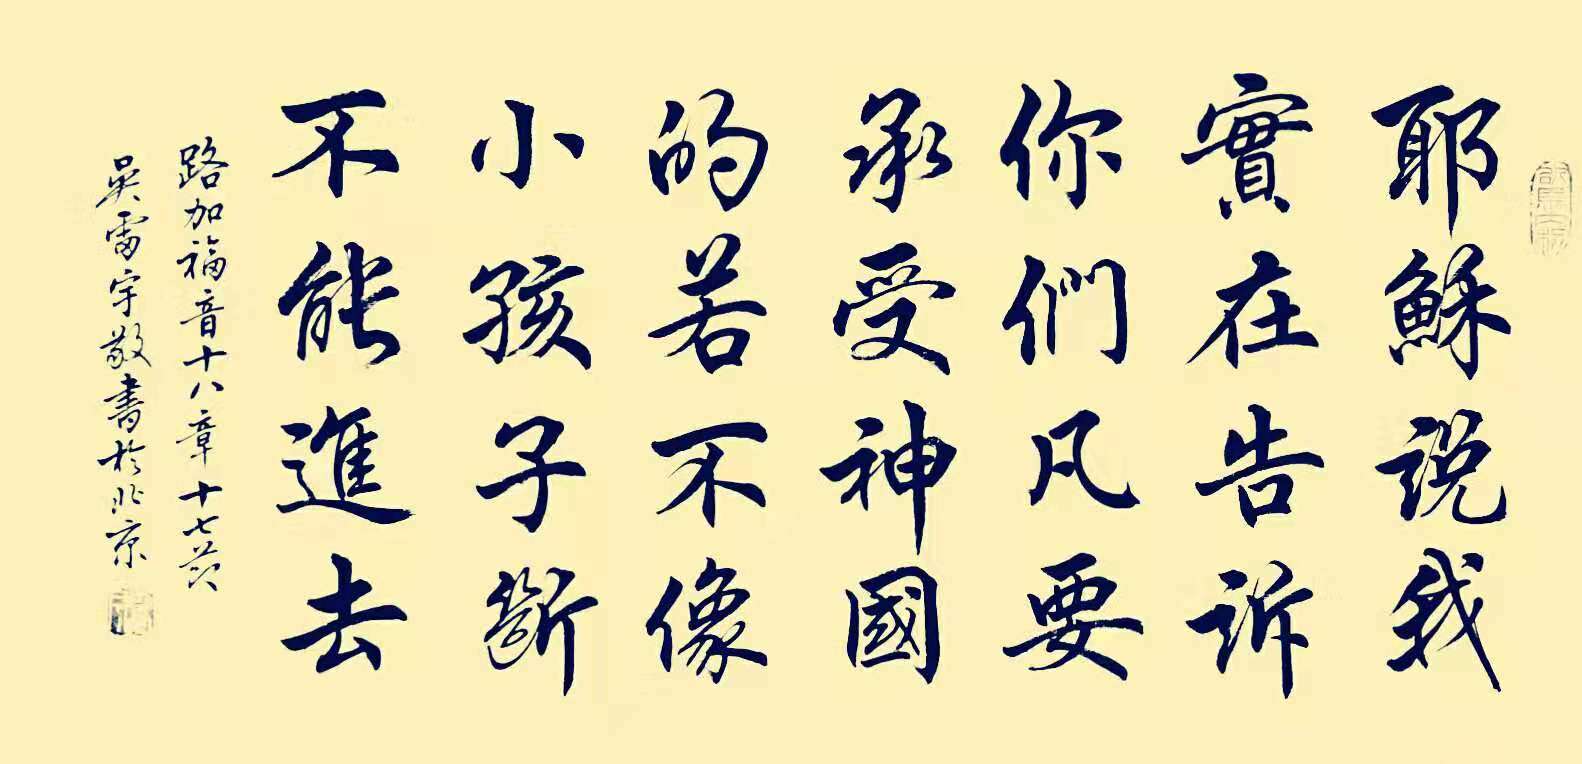 耶穌说我
實在告诉
你們凡要
承受神國
的若不像
小孩子斷
不能進去
路加福音十八章十七节
吴雷宇敬書於北京